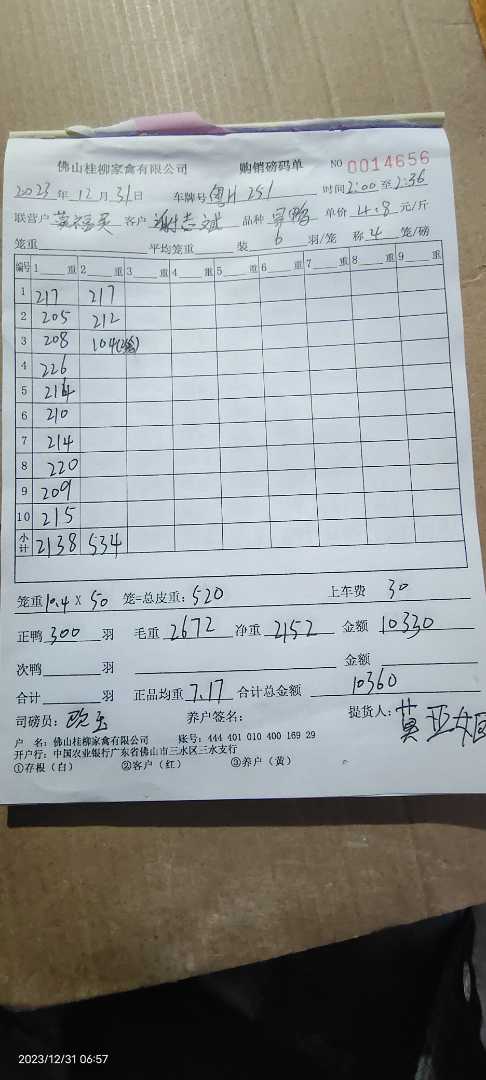 佛山桂柳家禽有限公司 购销磅码单 NO 0014656
2023年12月31日 车牌号 粤H 251 时间2:00至2:36
联营户 客户 谢志斌 品种 单价 4.8 元/斤
笼重 平均笼重 装 6 羽/笼 称 4 笼/磅
编号 1 重 2 重 3 重 4 重 5 重 6 重 7 重 8 重 9 重
1 217 217
2 205 212
3 208 104
4 226
5 214
6 210
7 214
8 220
9 209
10 215
小计 2138 534
笼重10.4 X 50 笼=总皮重:520 上车费 30
正鸭 300 羽 毛重 2672 净重 2152 金额 10330
次鸭 羽 金额
合计 羽 正品均重 7.17 合计总金额 10360
司磅员: 养户签名: 提货人:
户 名:佛山桂柳家禽有限公司 账号:444 401 010 400 169 29
开户行:中国农业银行广东省佛山市三水区三水支行
①存根(白) ②客户(红) ③养户(黄)
2023/12/31 06:57